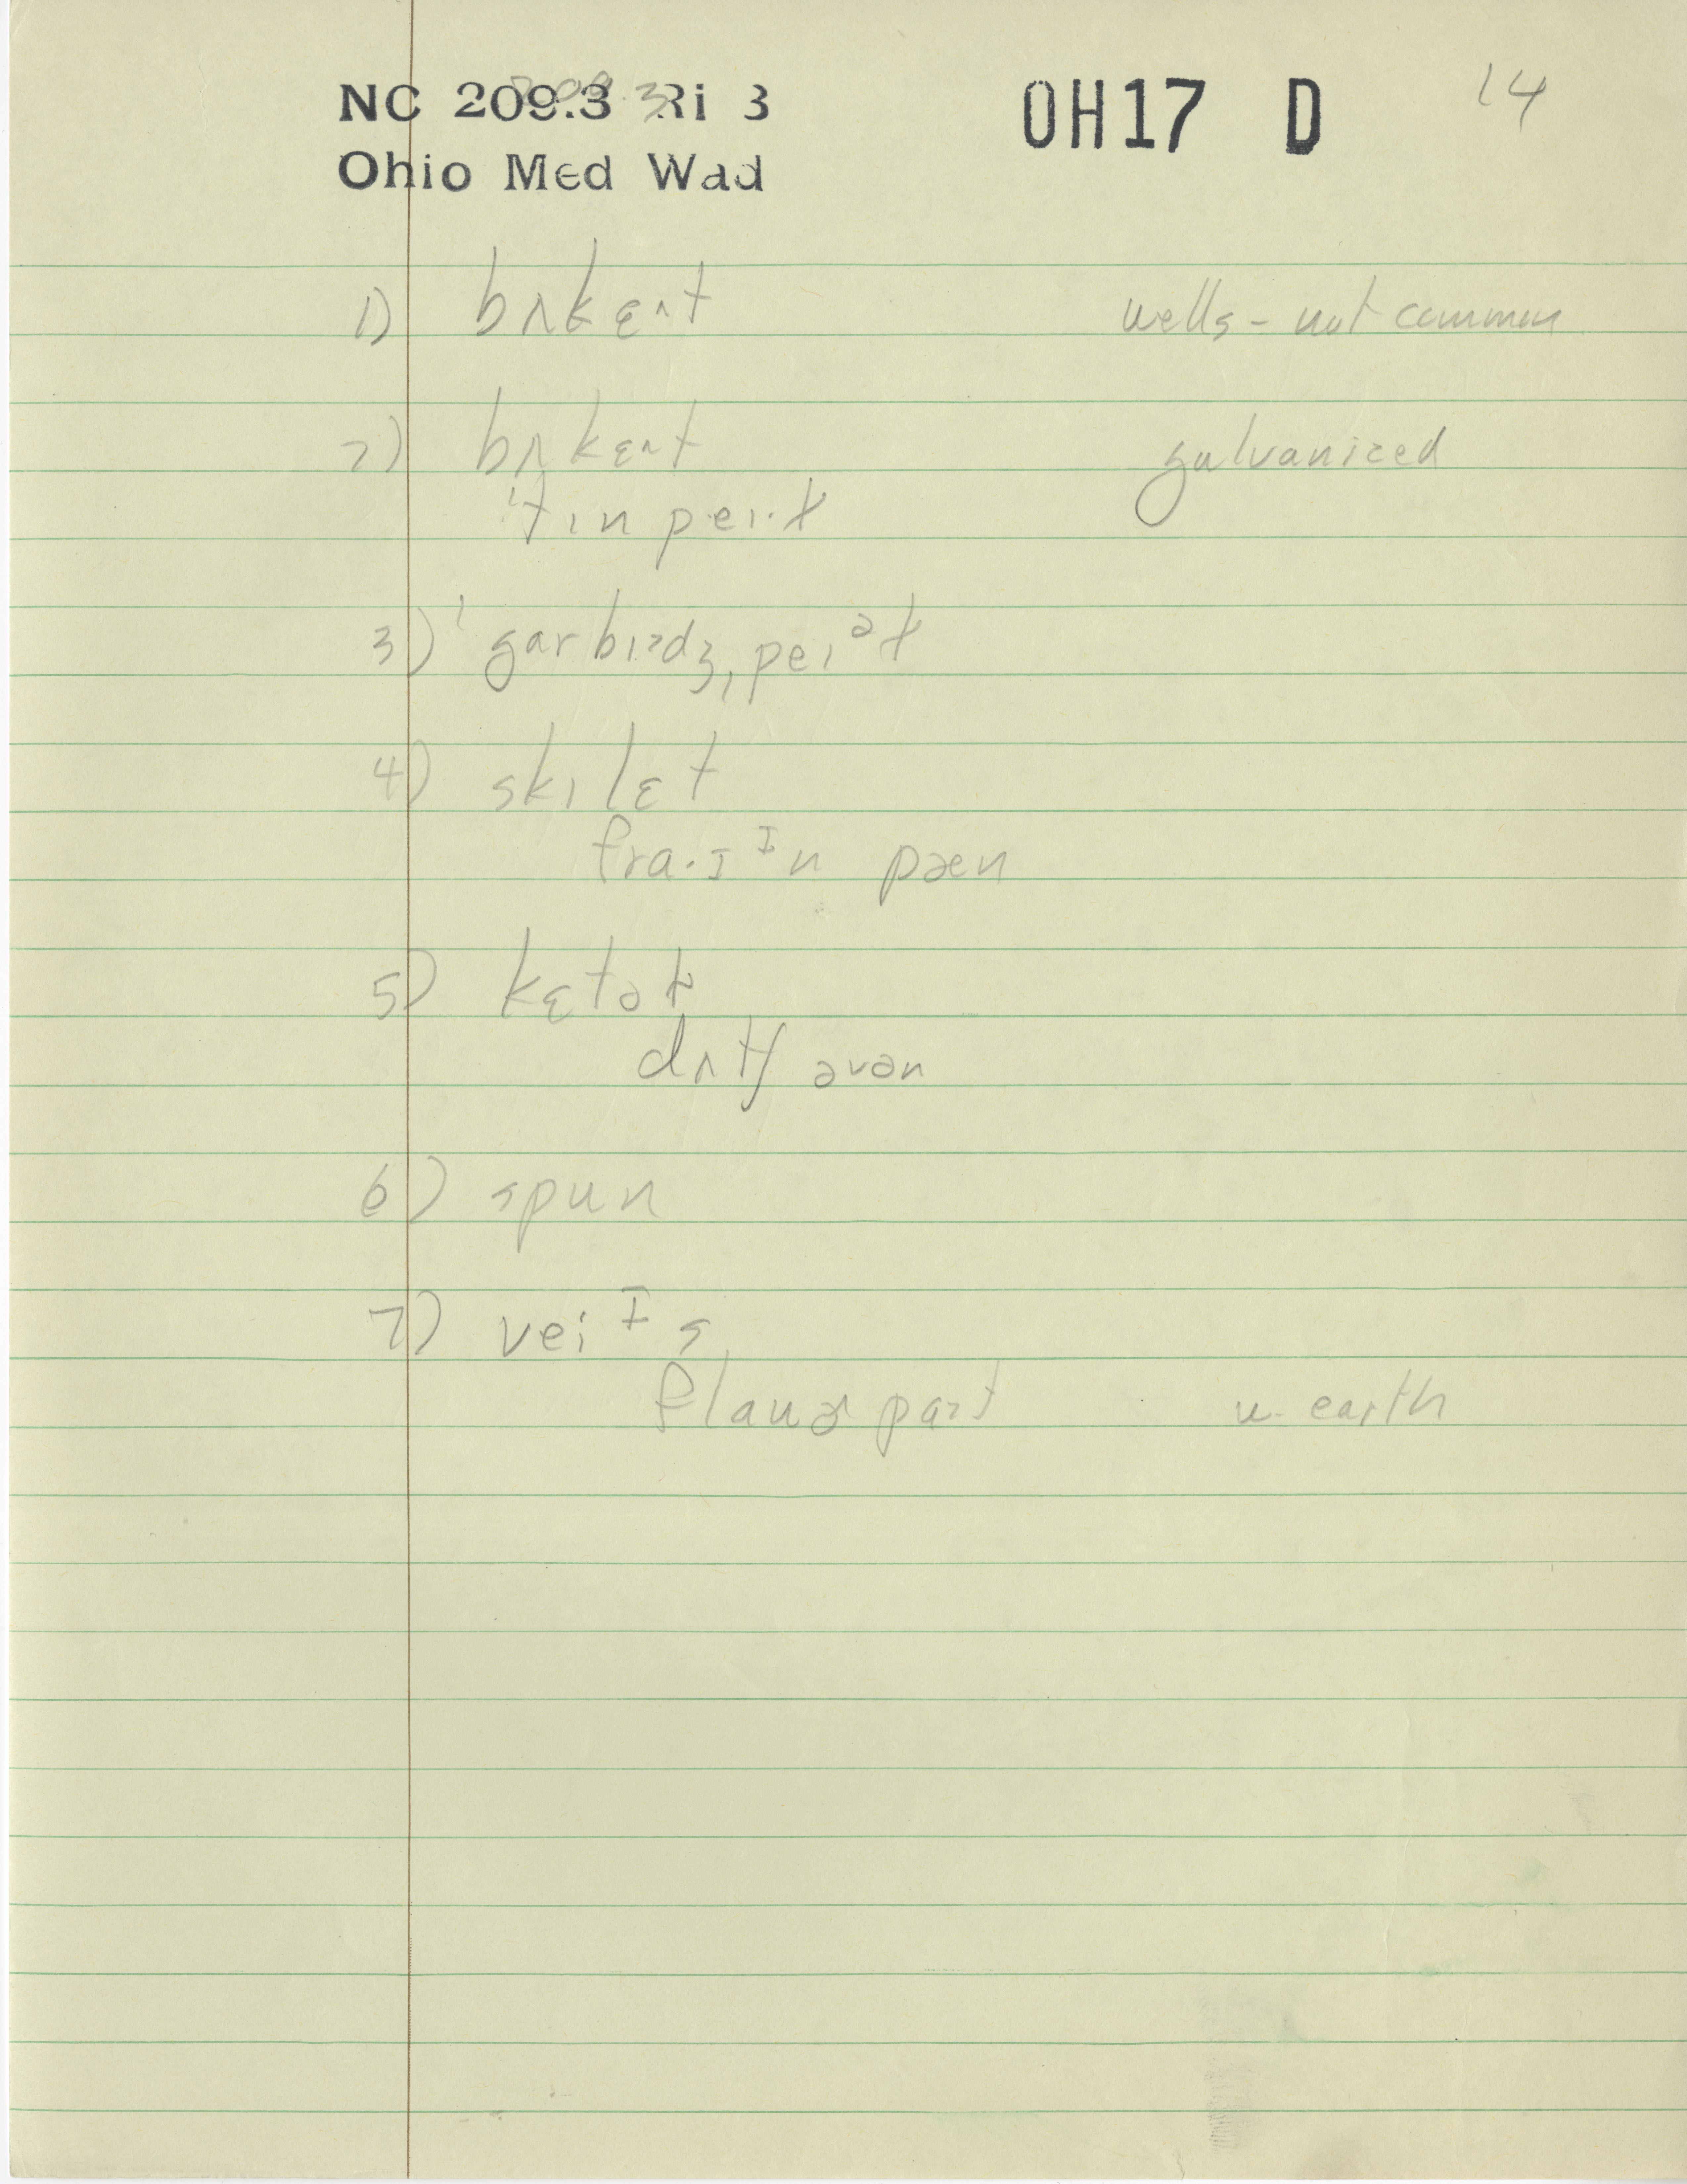 NC 209.3 Ri 3 OH17 D 14
Ohio Med Wad
1) bʌkɛ^t wells - not common
2) bʌkɛ^t galvanized
ˈtɪn peɪ·ɫ
3) ˈgarbɪdʒˌpeɪᵊɫ
4) skɪlɛt
fra·ɪᴵn pæn
5) kɛtəɫ
dʌtʃ əvən
6) spun
7) veiᴵs
flauɚ paɪt w. earth